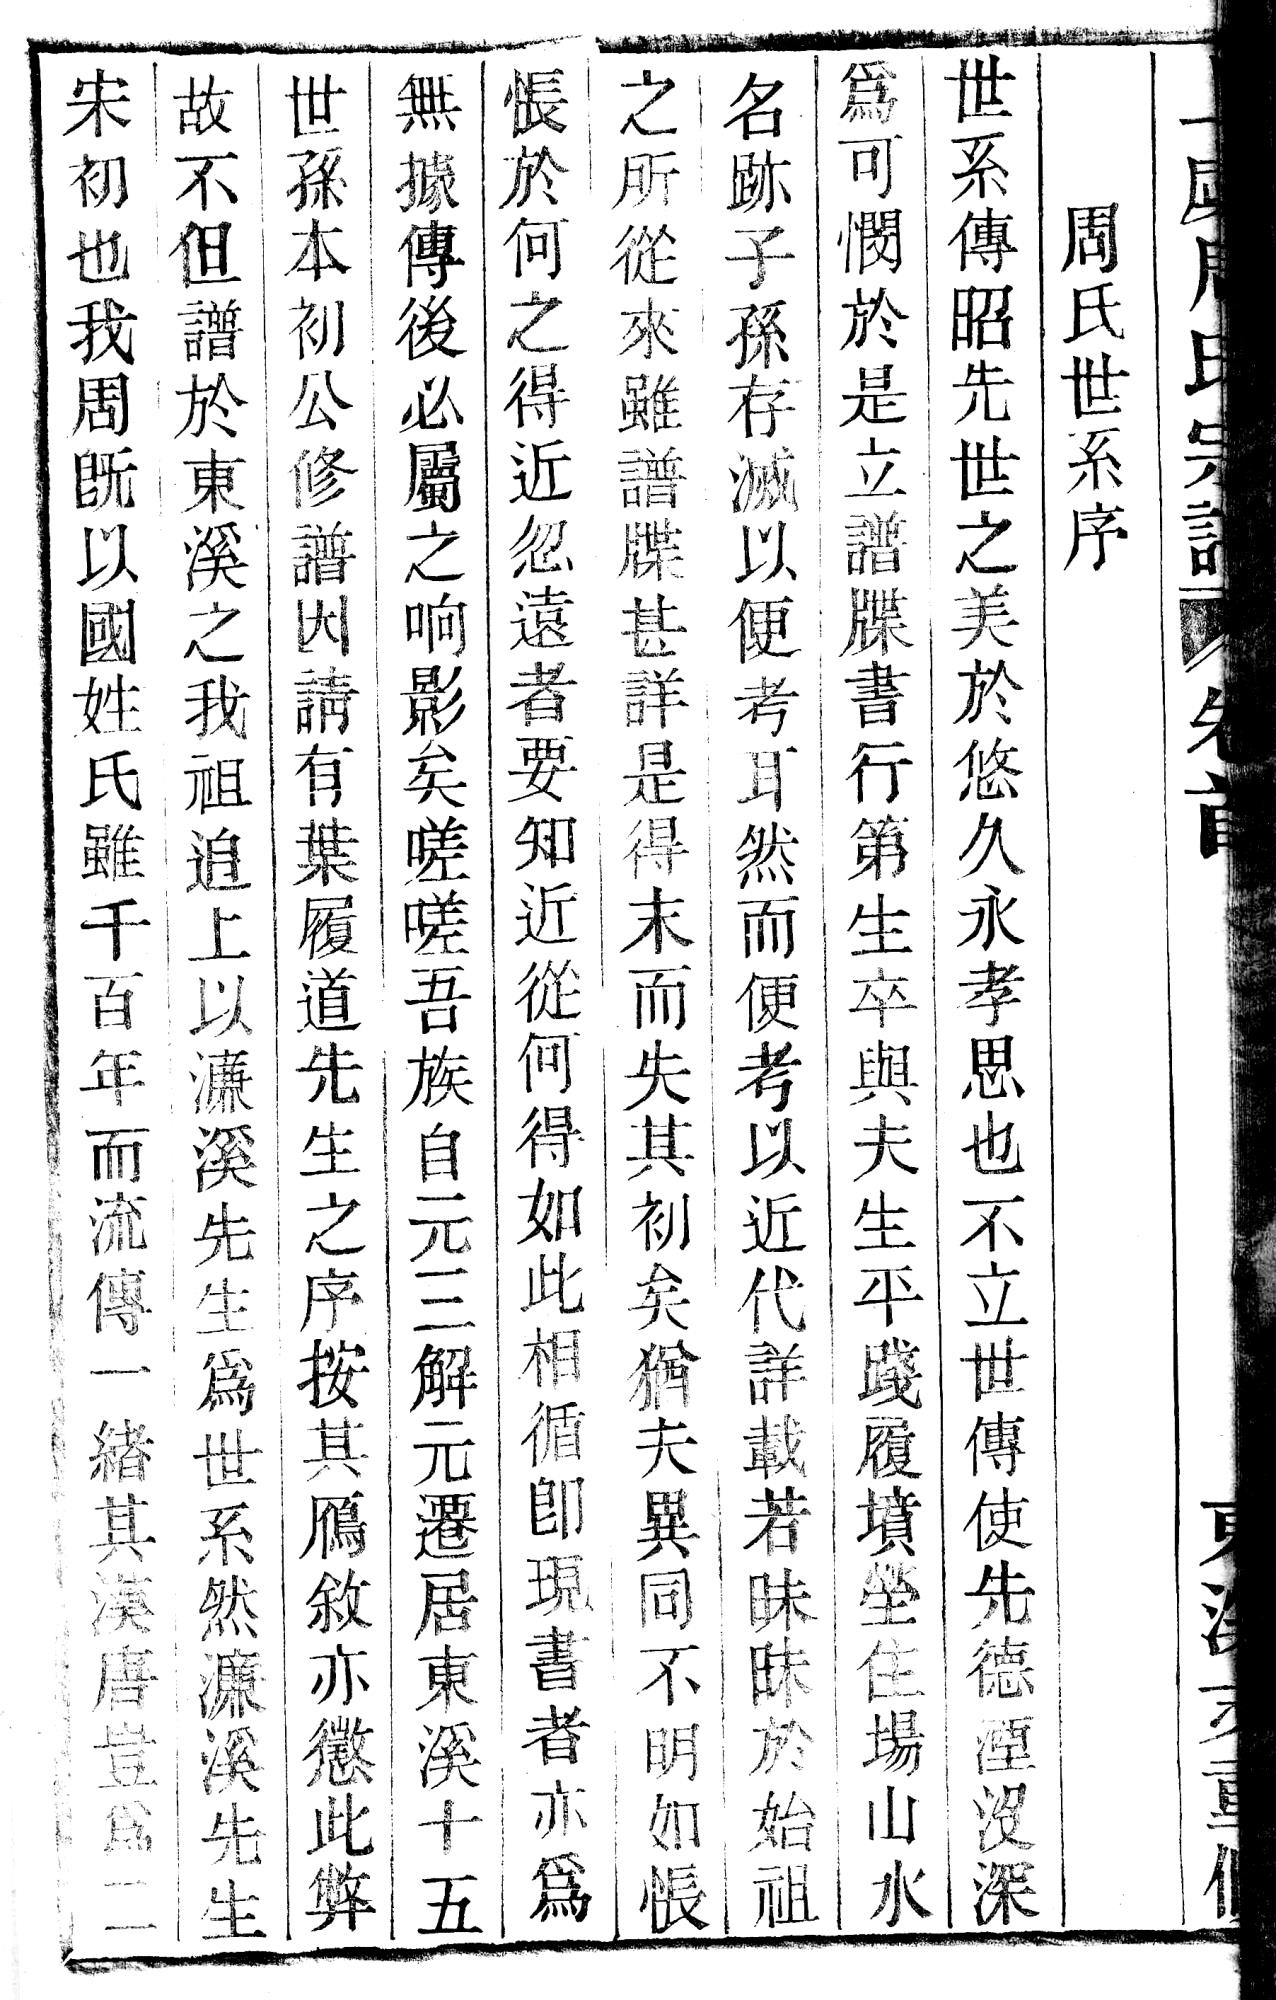 周氏宗譜 卷首 東溪 重修
周氏世系序
世系傳昭先世之美於悠久永孝思也不立世傳使先德湮沒深
爲可憫於是立譜牒書行第生卒與夫生平踐履墳塋住場山水
名跡子孫存滅以便考耳然而便考以近代詳載若昧昧於始祖
之所從來雖譜牒甚詳是得末而失其初矣猶夫異同不明如悵
悵於何之得近忽遠者要知近從何得如此相循卽現書者亦爲
無據傳後必屬之响影矣嗟嗟吾族自元三解元遷居東溪十五
世孫本初公修譜因請有葉履道先生之序按其鴈敘亦懲此弊
故不但譜於東溪之我祖追上以濂溪先生爲世系然濂溪先生
宋初也我周旣以國姓氏雖千百年而流傳一緒其漢唐豈爲二